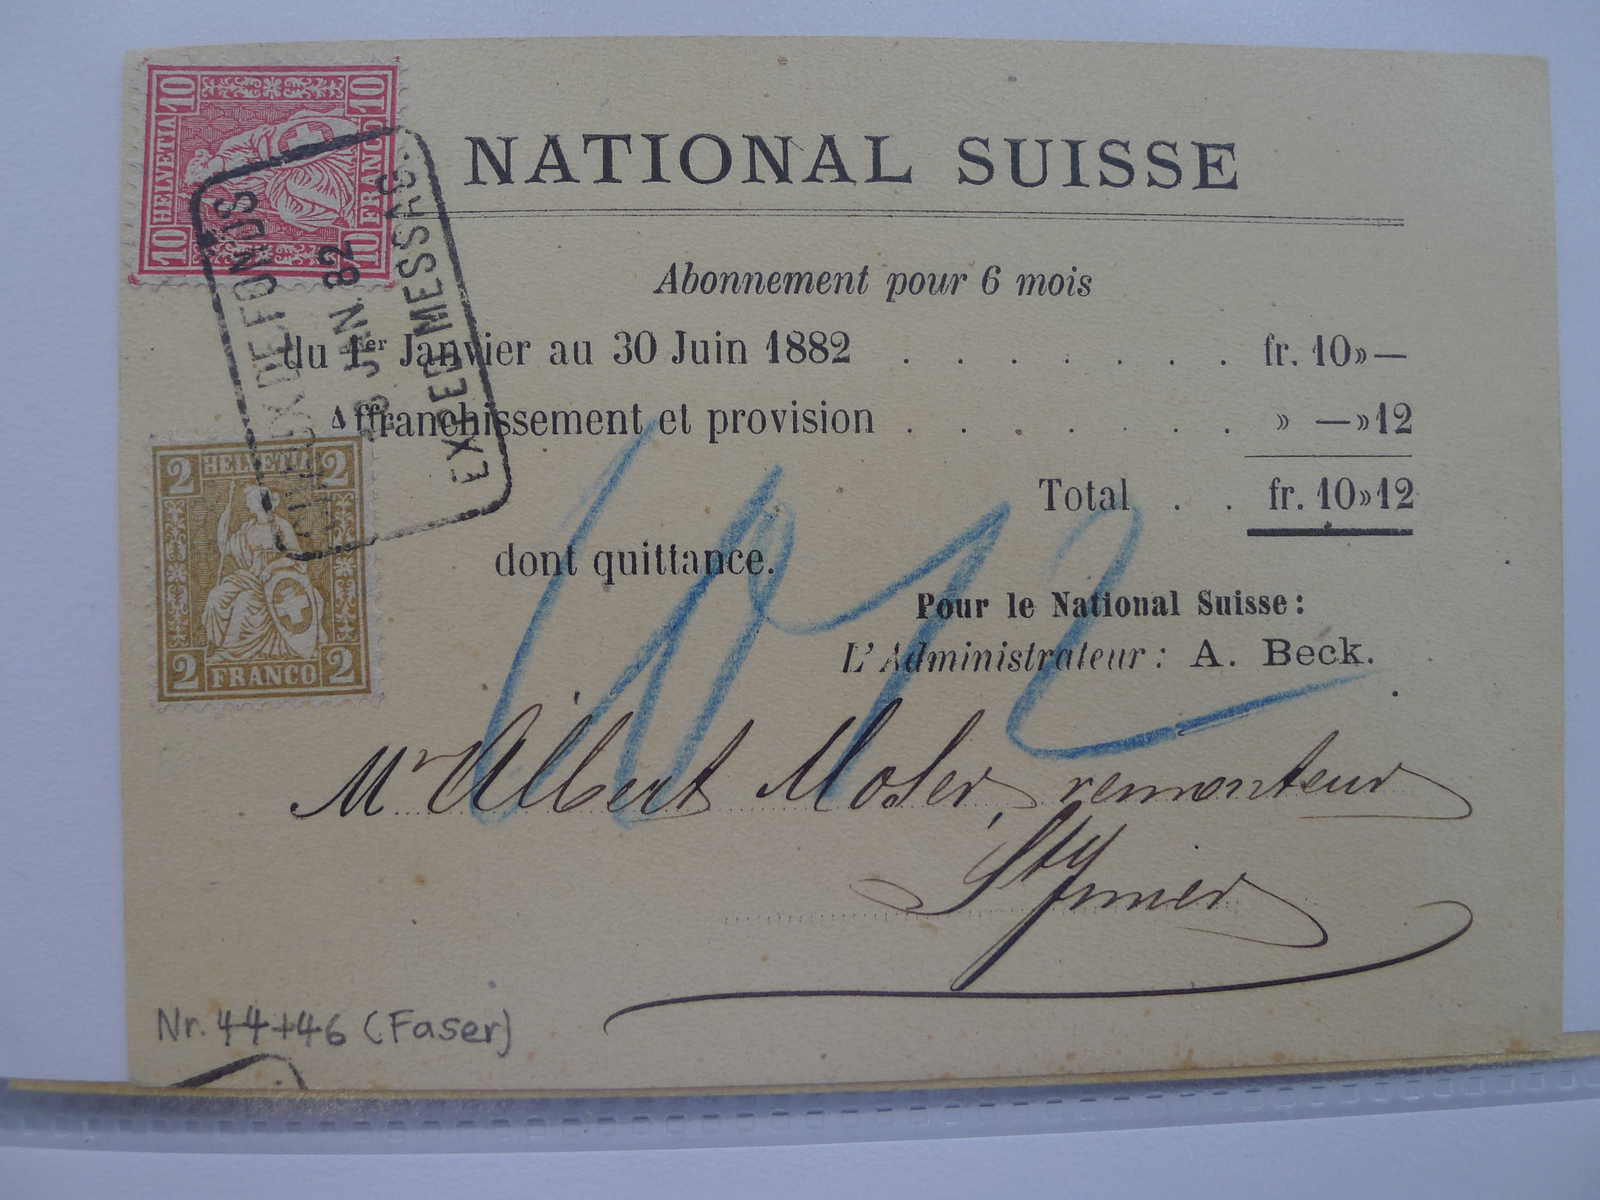 10 HELVETIA 10
10 FRANCO 10
CHAUX DE FONDS
JAN. 82
EXPED MESSAG.
NATIONAL SUISSE
Abonnement pour 6 mois
du 1er Janvier au 30 Juin 1882 . . . . . . . fr. 10»—
Affranchissement et provision . . . . . . . » —»12
Total . . fr. 10»12
2 HELVETIA 2
2 FRANCO 2
dont quittance.
Pour le National Suisse:
L'Administrateur: A. Beck.
10 12
Mr Albert Moser, remonteur
St Ymier
Nr. 44+46 (Faser)